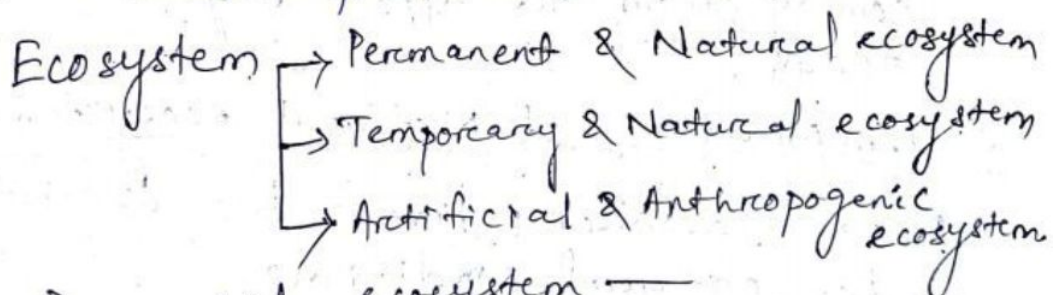 Ecosystem → Permanent & Natural ecosystem
→ Temporary & Natural ecosystem
→ Artificial & Anthropogenic
ecosystem
ecosystem —